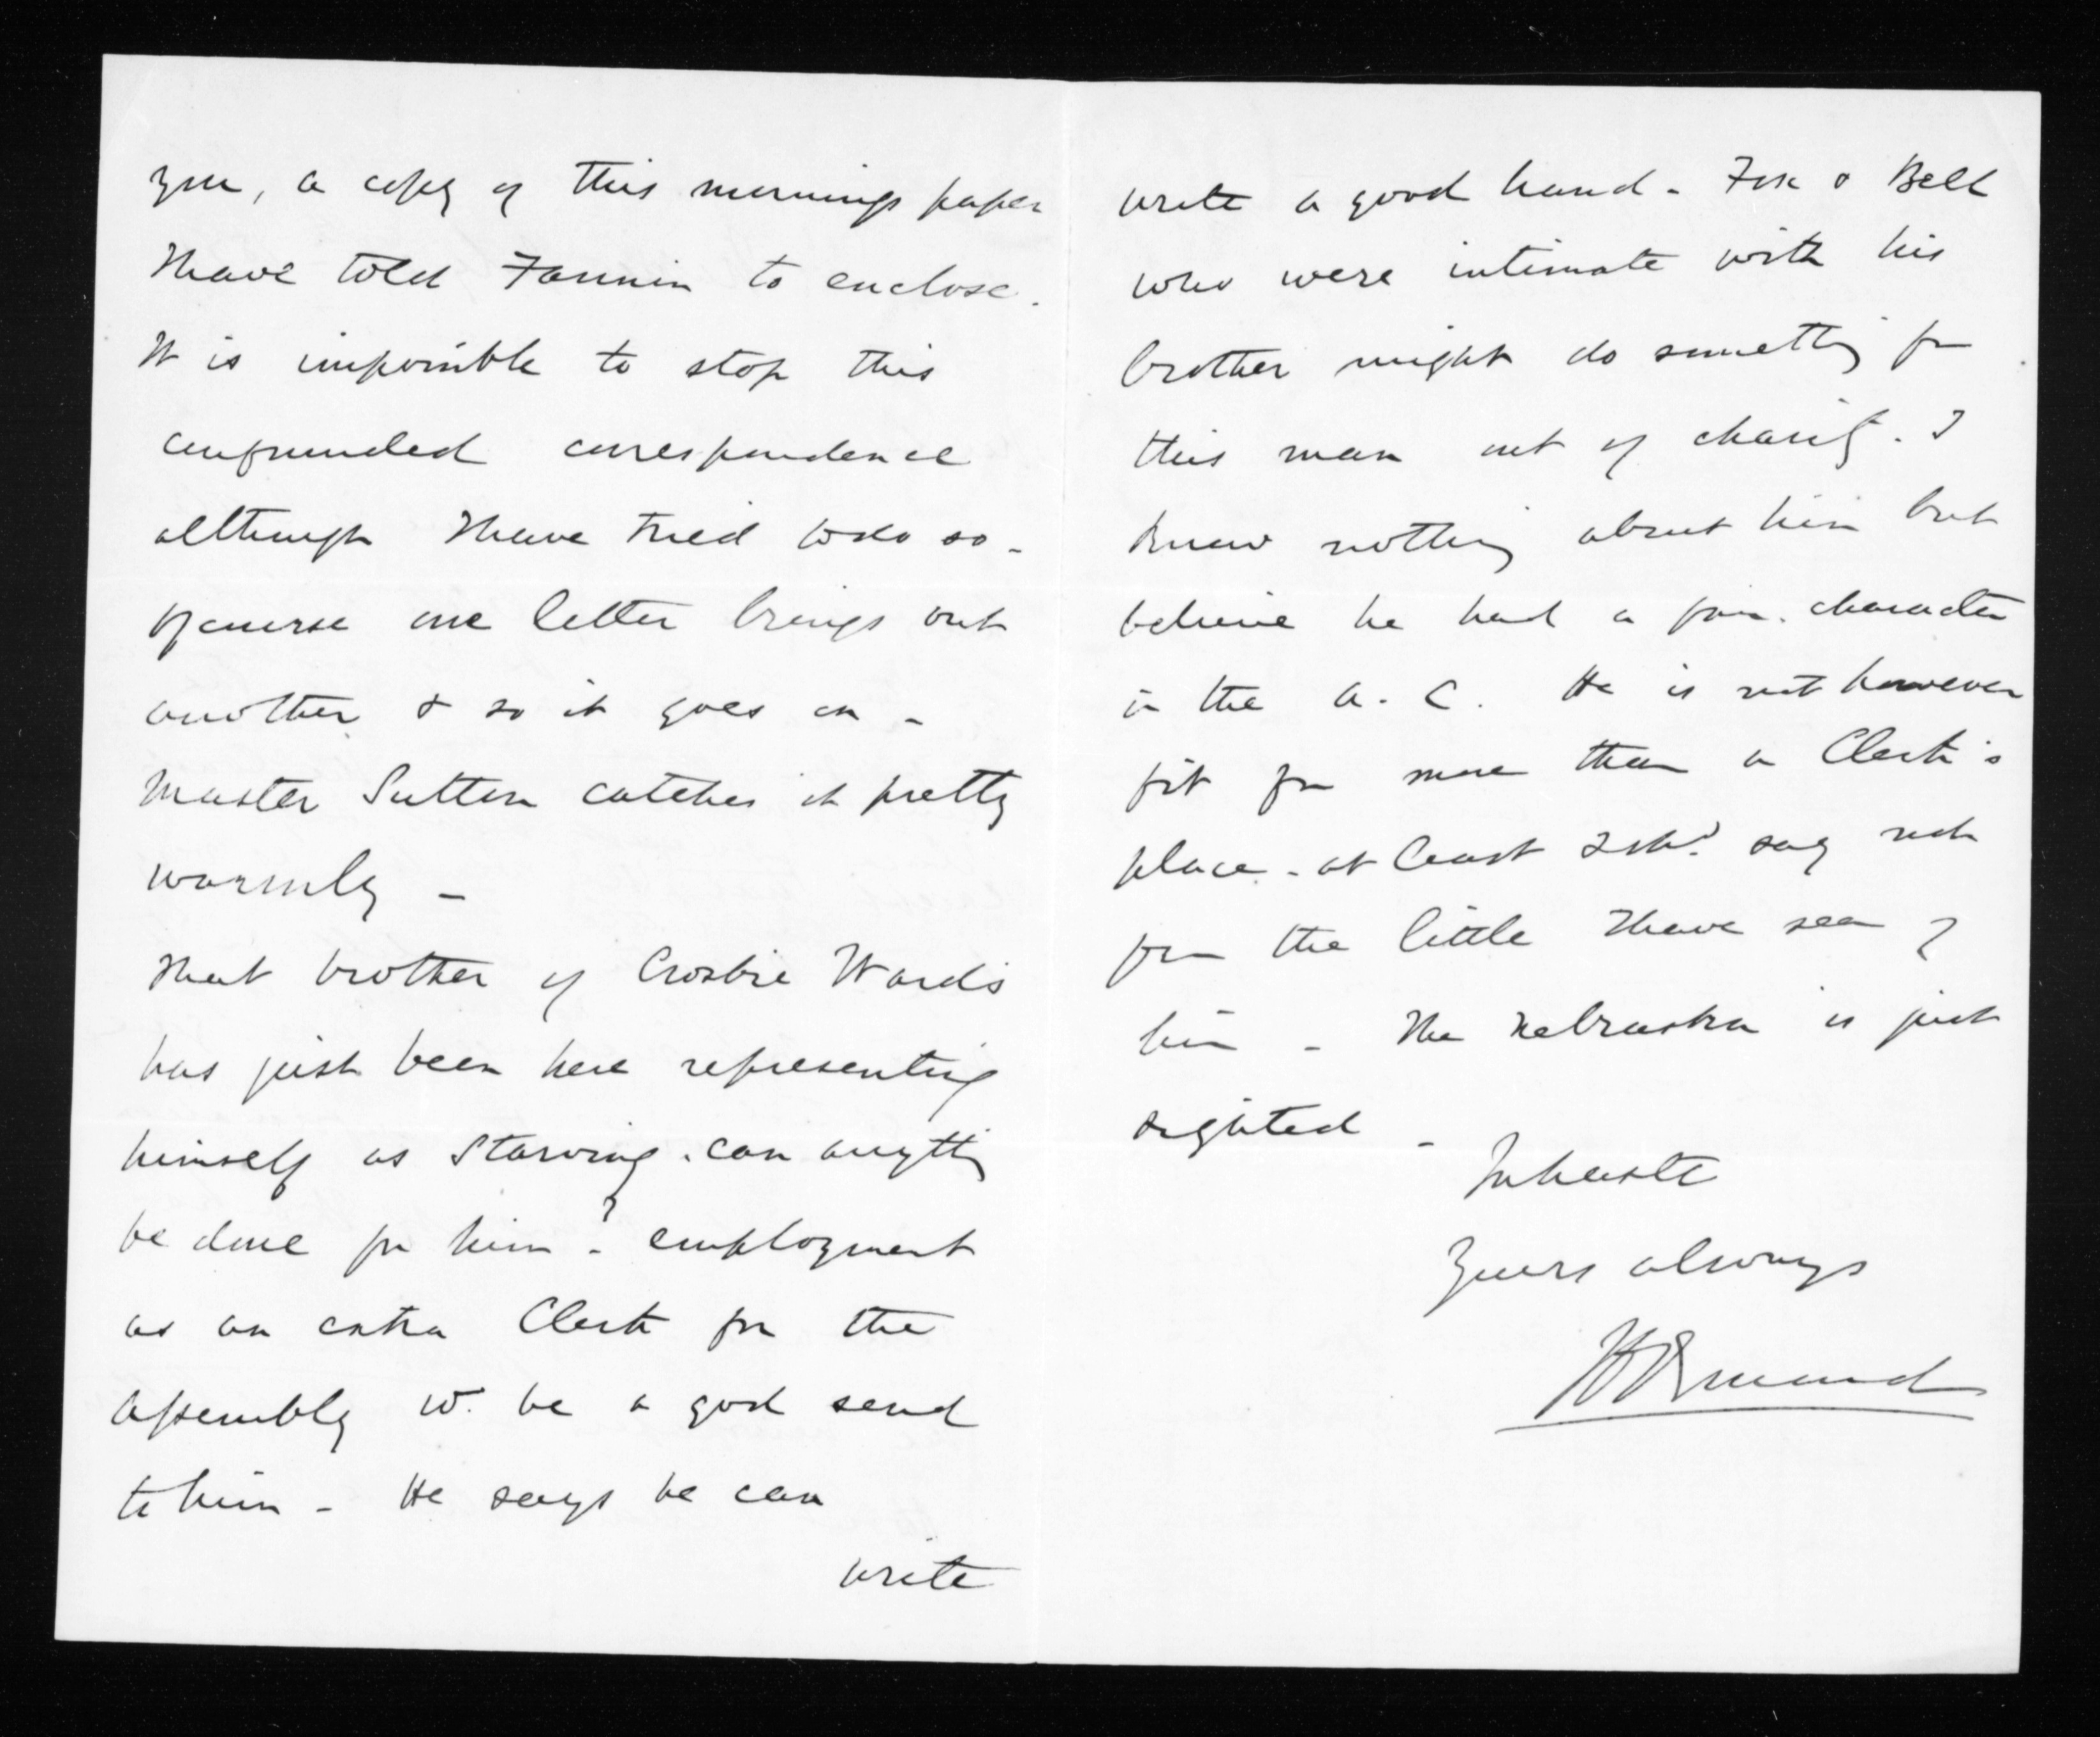 you, a copy of this mornings paper
I have told Fannin to enclose.
It is impossible to stop this
confounded correspondence
although I have tried to do so -
of course one letter brings out
another & so it goes on -
Master Sutton catches it pretty
warmly -
That brother of Crosbie Ward's
has just been here representing
himself as starving. can anything
be done for him? - employment
as an extra Clerk for the
Assembly wd. be a god send
to him - He says he can
write
write a good hand - Fox & Bell
who were intimate with his
brother might do something for
this man out of charity. I
know nothing about him but
believe he had a fair character
in the A. C. He is not however
fit for more than a Clerk's
place - at least I shd. say not
from the little I have seen of
him - The Nebraska is just
sighted -
In haste
Yours always
JD Ormond